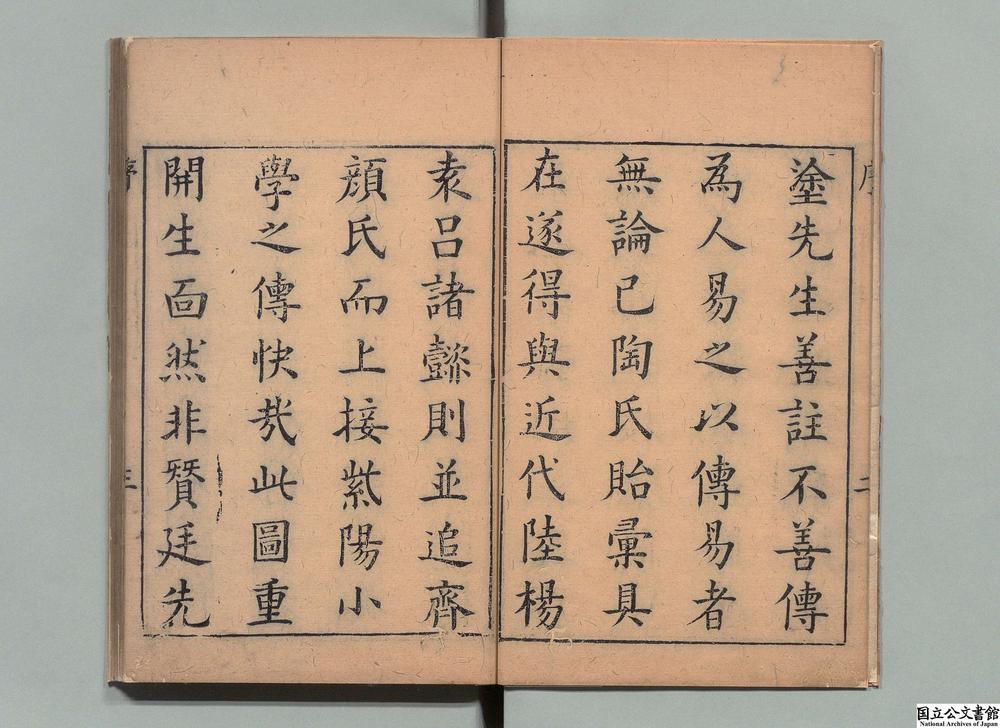 塗先生善註不善傳
為人易之以傳易者
無論已陶氏貽彙具
在遂得與近代陸楊
袁呂諸懿則並追齊
顏氏而上接紫陽小
學之傳快哉此圖重
開生面然非贒廷先
序
二
序
三
国立公文書館
National Archives of Japan